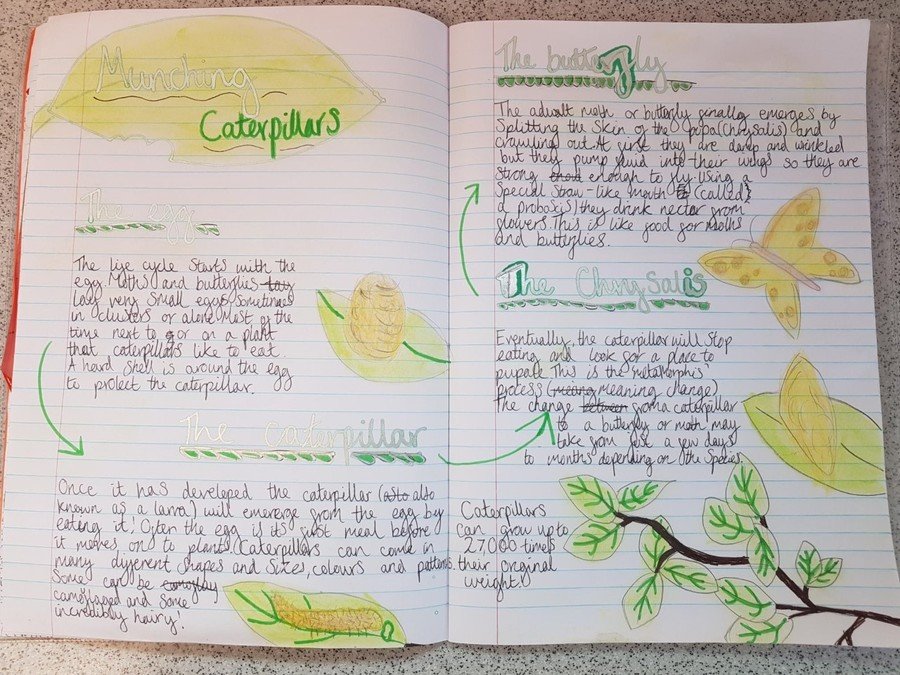 Munching
Caterpillars
The egg
The life cycle starts with the
egg. Moths and butterflies lay
lay very small eggs sometimes
in clusters or alone. Most of the
time next to or on a plant
that caterpillars like to eat.
A hard shell is around the egg
to protect the caterpillar.
The caterpillar
Once it has developed the caterpillar (also
known as a larva) will emererge from the egg by
eating it! Often the egg is it's just meal before
it moves on to plants. Caterpillars can come in
many different shapes and sizes, colours and patterns
Some can be
camoflaged and some
incredibly hairy!
Caterpillars
can grow up to
27,000 times
their original
weight!
The butterfly
The adwalt moth or butterfly finally emerges by
Splitting the skin of the pupa (chrysalis) and
crawling out. At first they are damp and wrinkled
but they pump fluid into their wings so they are
strong enough to fly. Using a
Special Straw-like mouth (called
a proboscis) they drink nectar from
flowers. This is like food for moths
and butterflies.
The Chrysalis
Eventually, the caterpillar will stop
eating and look for a place to
pupate. This is the metamorphis
process (meaning change)
The change between from a caterpillar
to a butterfly or moth may
take from just a few days
to months depending on the species.